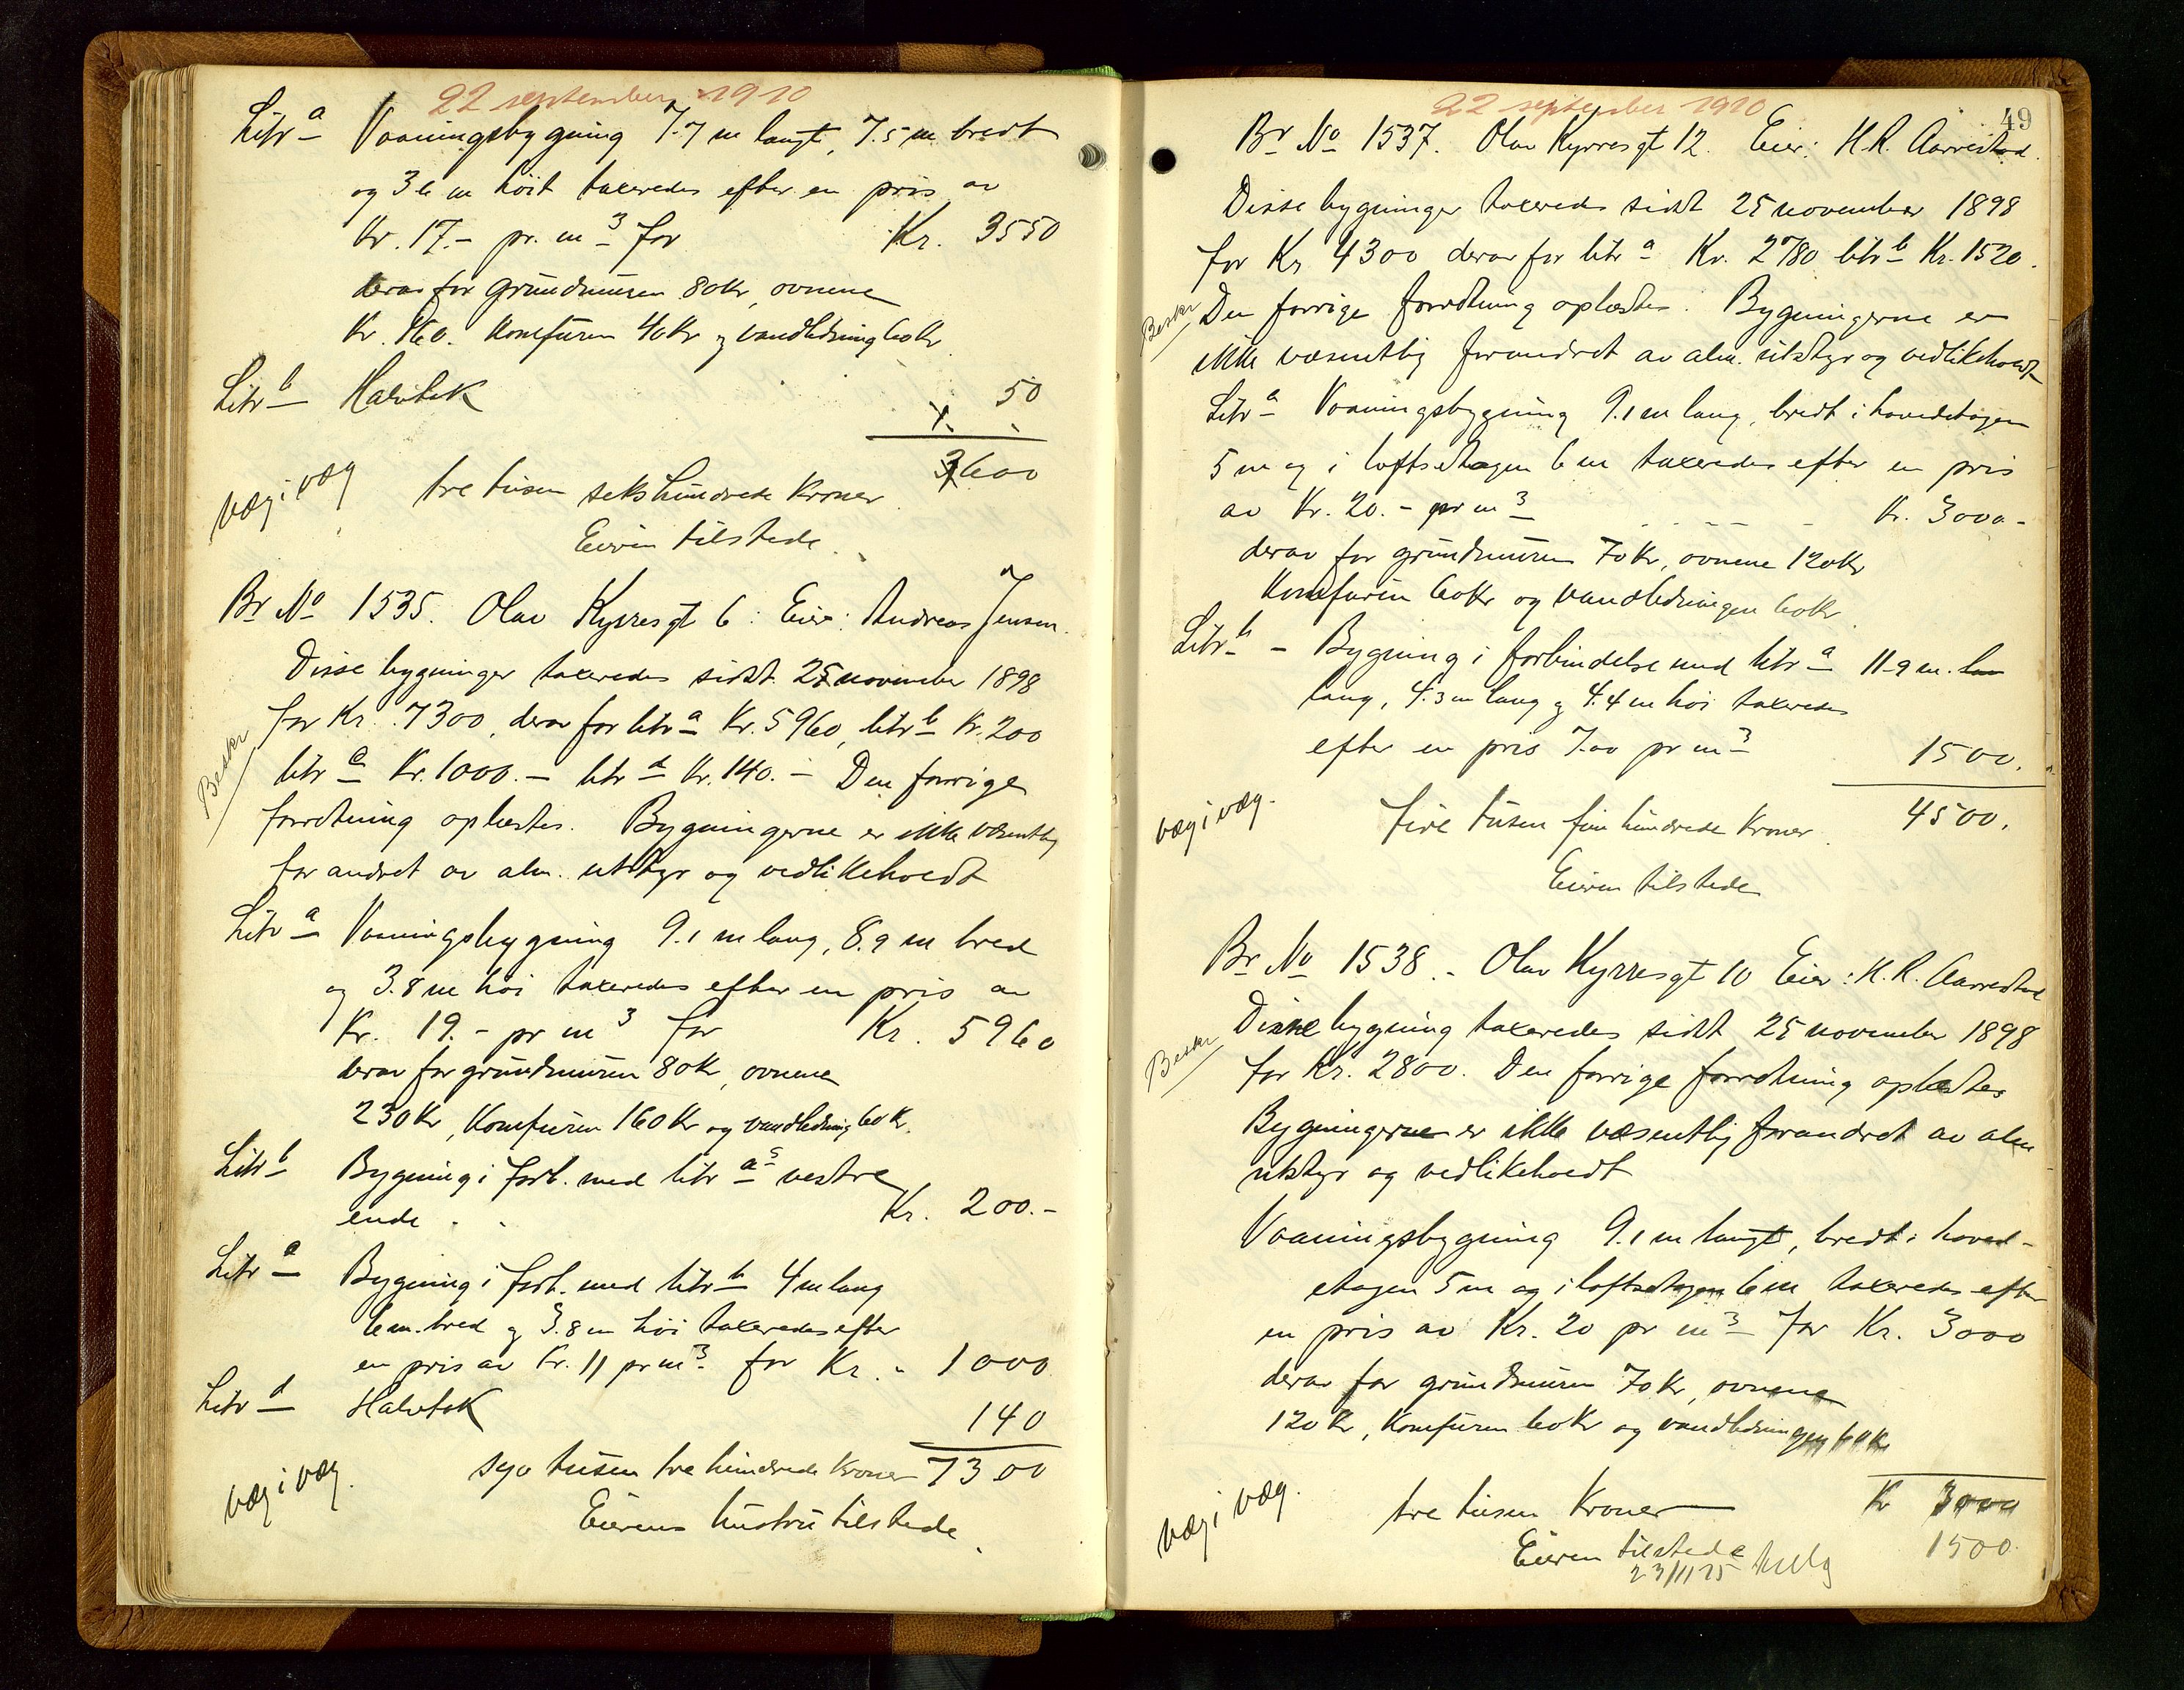 22 september 1910
Litr a Vaaningsbygning 7.7 m langt, 7.5 m bredt
og 3.6 m høit taxeredes efter en pris av
Kr. 17.- pr. m3 for Kr. 3550
derav for grundmuren 80 Kr, ovnene
Kr. 160. Komfuren 40 Kr og vandledning 60 Kr
Litr b Halvtak 50
3600
væg i væg tre tusen sekshundrede Kroner
Eieren tilstede.
Br No 1535. Olav Kyrresgt 6: Eier: Andreas Jensen.
Disse bygninger taxeredes sidst 25 november 1898
for Kr. 7300, derav for litr a Kr. 5960, litr b Kr. 200
Beskr
litr c Kr. 1000.- litr d Kr. 140.- Den forrige
forretning oplæstes. Bygningerne er ikke væsentlig
forandret av alm. utstyr og vedlikeholdt
Litr a Vaaningsbygning 9.1 m lang, 8.9 m bred
og 3.8 m høi taxeredes efter en pris av
Kr. 19.- pr m3 for Kr. 5960
derav for grundmuren 80 Kr, ovnene
230 Kr, Komfuren 160 Kr og vandledning 60 Kr.
Litr b Bygning i forb. med litr a s vestre
ende Kr. 200.-
Litr c Bygning i forb. med litr b 4 m lang
6 m. bred og 3.8 m høi taxeredes efter
en pris av Kr. 11 pr m3 for Kr. 1000
Litr d Halvtak 140
syv tusen tre hundrede Kroner 7300
væg i væg.
Eierens hustru tilstede.
22 september 1910
49
Br No 1537. Olav Kyrresgt 12. Eier: K.R. Aarrestad.
Disse bygninger taxeredes sidst 25 november 1898
for Kr 4300 derav for litr a Kr. 2780 litr b Kr. 1520.
Beskr
Den forrige forretning oplæstes. Bygningerne er
ikke væsentlig forandret av alm. utstyr og vedlikeholdt
Litr a Vaaningsbygning 9.1 m lang, bredt i hovedetagen
5 m og i loftsetagen 6 m taxeredes efter en pris
av Kr. 20.- pr m3 Kr. 3000-
derav for grundmuren 70 Kr, ovnene 120 Kr
Komfuren 60 Kr og vandledningen 60 Kr.
Litr b - Bygning i forbindelse med litr a 11-9 m.
lang, 4.3 m lang og 4.4 m høi taxeredes
efter en pris 7.00 pr m3 1500.
væg i væg. fire tusen fem hundrede Kroner 4500.
Eieren tilstede
Br No 1538.- Olav Kyrresgt 10 Eier: K.R. Aarrestad
Denne bygning taxeredes sidst 25 november 1898
Beskr
for Kr. 2800. Den forrige forretning oplæstes
Bygningerne er ikke væsentlig forandret av alm
utstyr og vedlikeholdt
Vaaningsbygning 9.1 m langt, bredt i hoved-
etagen 5 m og i loftsetagen 6 m taxeredes efter
en pris av Kr. 20 pr m3 for Kr. 3000
derav for grundmuren 70 Kr, ovnene
120 Kr, Komfuren 60 Kr og vandledningen 60 Kr
væg i væg. tre tusen Kroner Kr 3000
Eieren tilstede 1500.
23/11 15